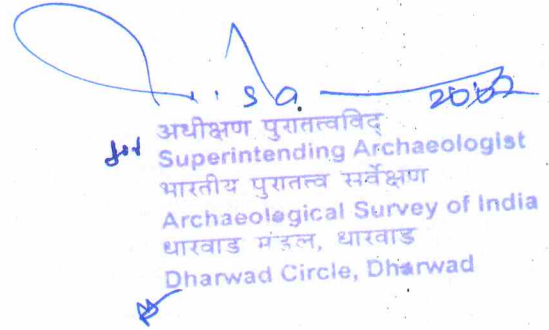 for अधीक्षण पुरातत्वविद्
Superintending Archaeologist
भारतीय पुरातत्व सर्वेक्षण
Archaeological Survey of India
धारवाड मंडल, धारवाड
Dharwad Circle, Dharwad